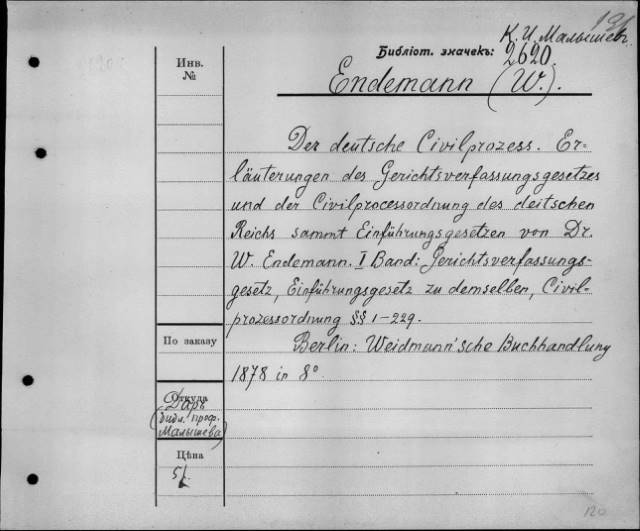 К. И. Малышевъ.
Библіот. значекъ: 2620.
Инв.
№
Endemann (W.).
Der deutsche Civilprozess. Er-
läuterungen des Gerichtsverfassungsgesetzes
und der Civilprocessordnung des deitschen
Reichs sammt Einführungsgesetzen von Dr.
W. Endemann. I Band: Gerichtsverfassungs-
gesetz, Einführungsgesetz zu demselben, Civil-
prozessordnung §§ 1-229.
Berlin: Weidmann'sche Buchhandlung
1878 in 8°
По заказу
Откуда
Даръ
(библ. проф.
Малышева)
Цѣна
120